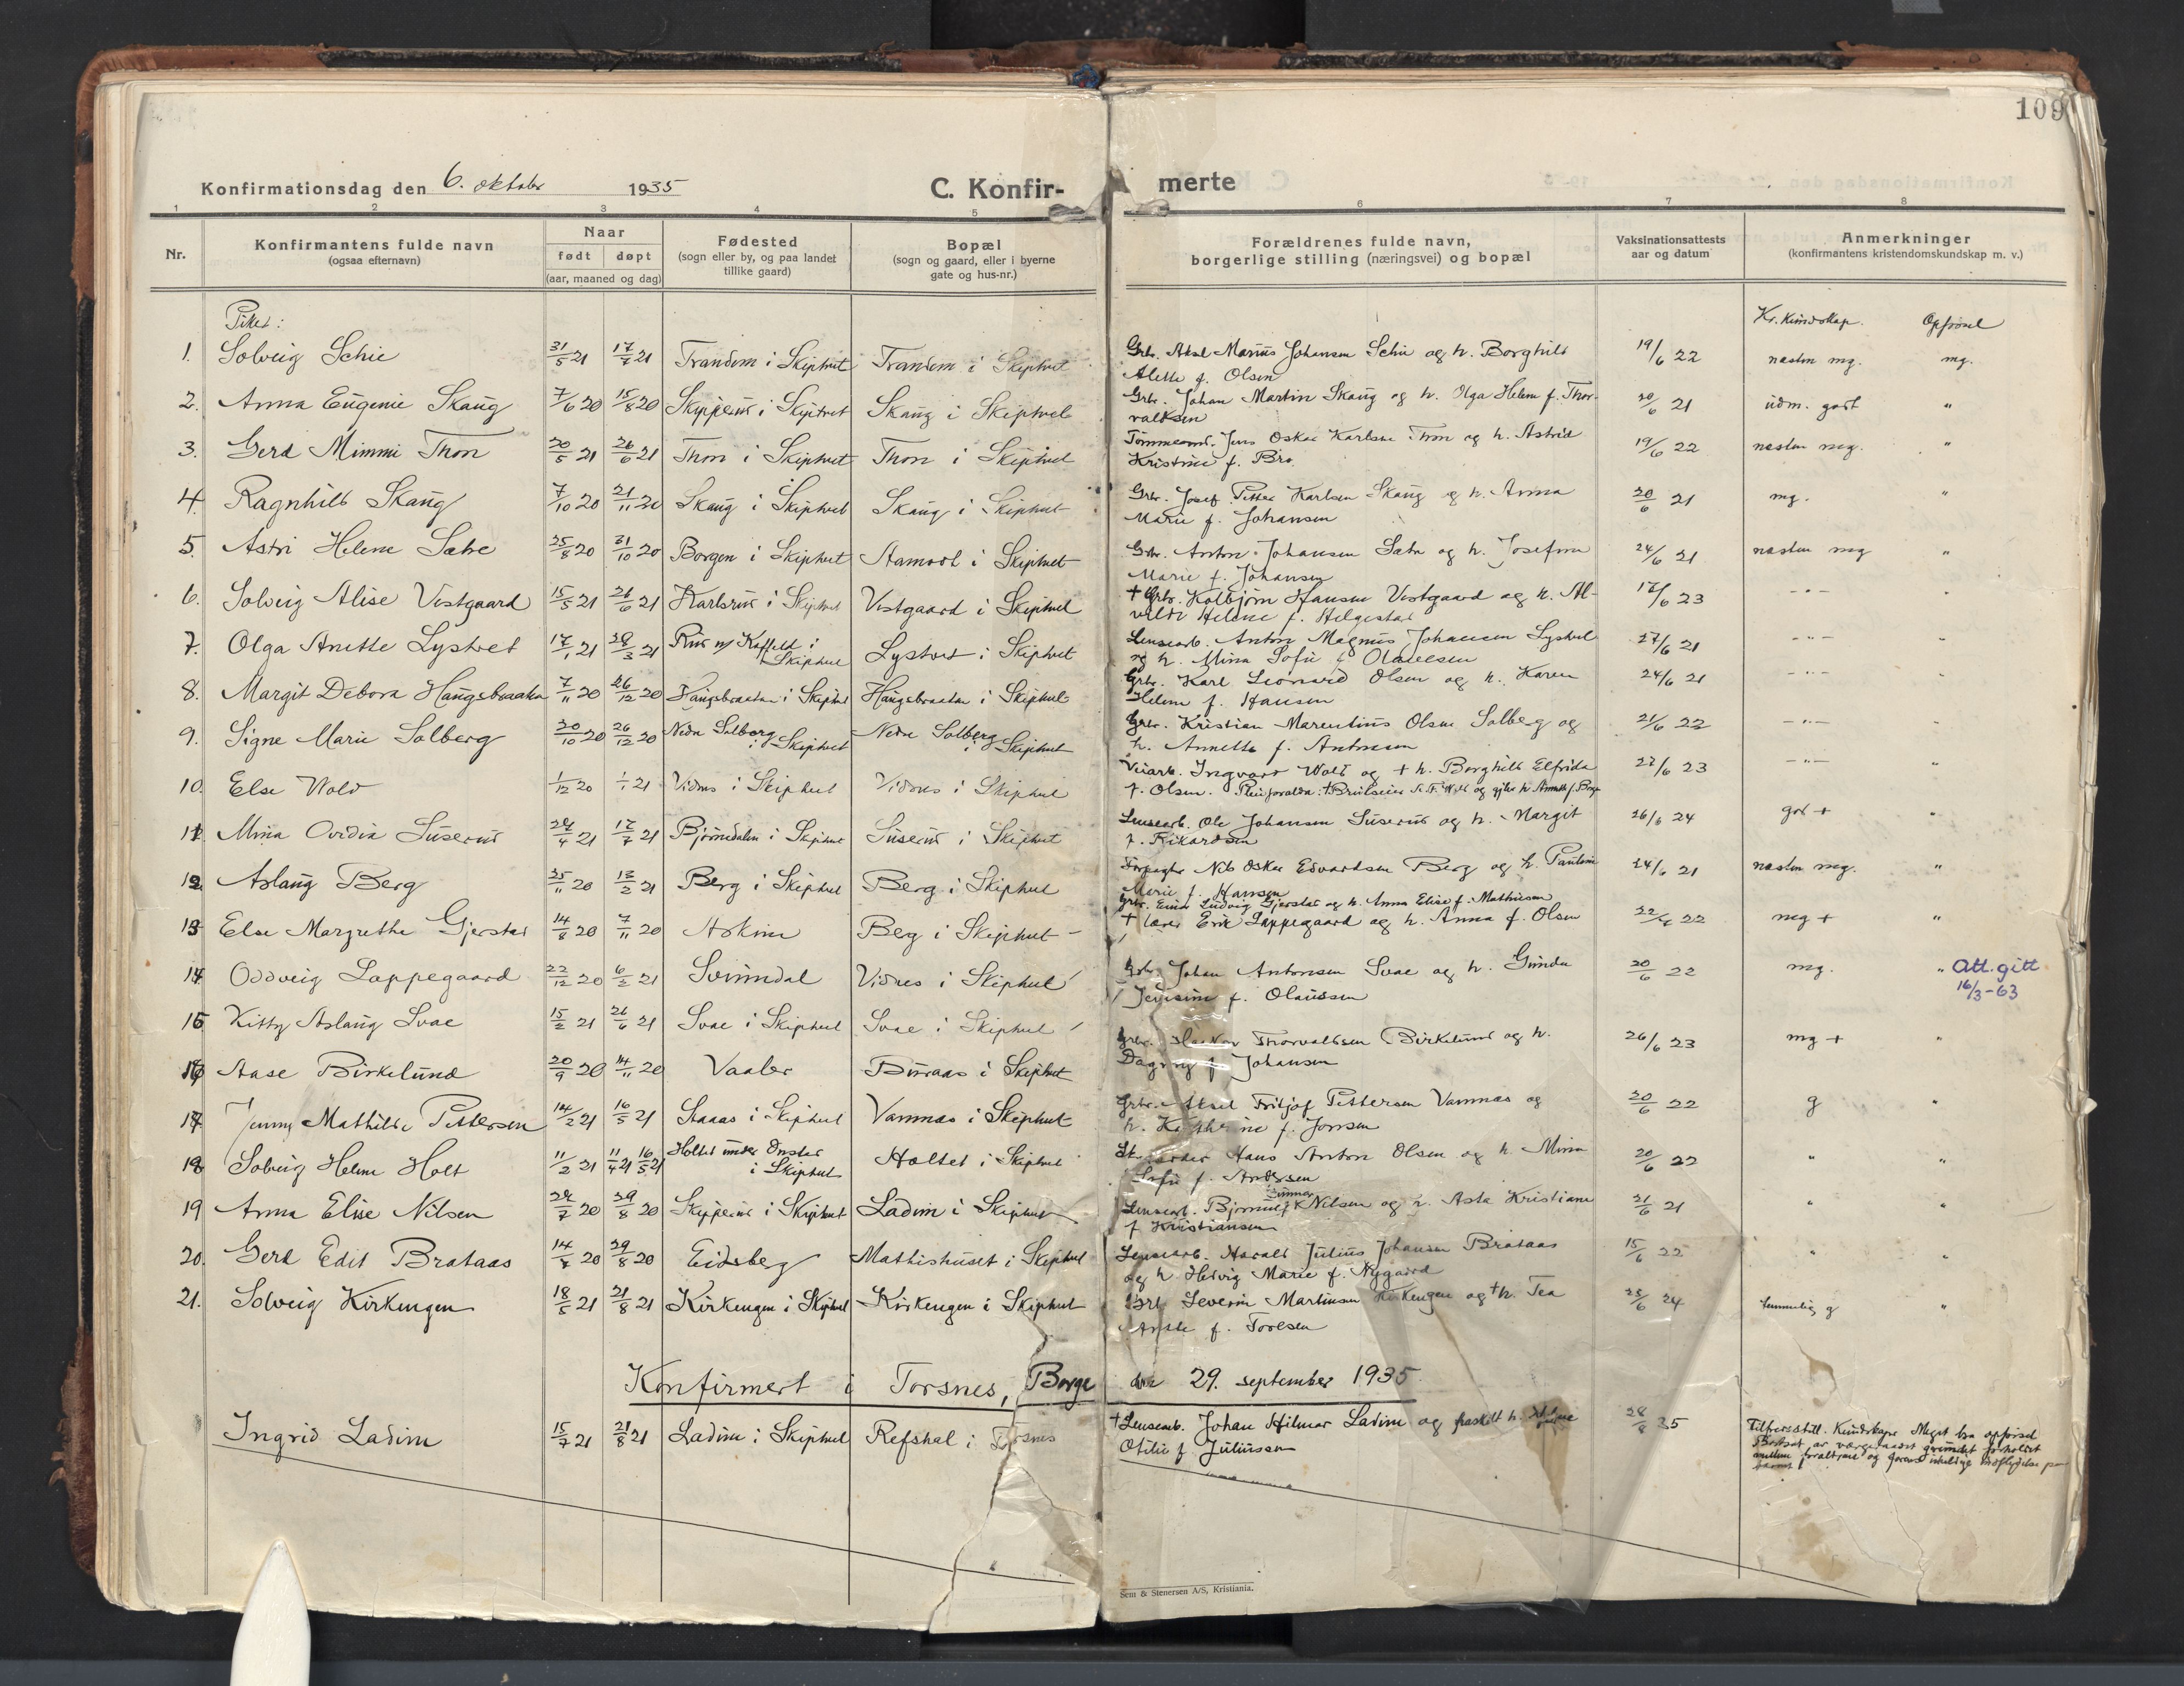 109
Konfirmationsdag den 6. oktober 1935
C. Konfir-
merte
1 2 3 4 5 6 7 8
Nr.
Konfirmantens fulde navn
(ogsaa efternavn)
Naar
født døpt
(aar, maaned og dag)
Fødested
(sogn eller by, og paa landet
tillike gaard)
Bopæl
(sogn og gaard, eller i byerne
gate og hus-nr.)
Forældrenes fulde navn,
borgerlige stilling (næringsvei) og bopæl
Vaksinationsattests
aar og datum
Anmerkninger
(konfirmantens kristendomskundskap m. v.)
Piker:
Kr. kundskap. Opførsel
1. Solveig Schie 31/5 21 17/7 21 Trandem i Skiptvet Trandem i Skiptvet Grbr. Aksel Marius Johansen Schie og h. Borghild 19/6 22 nesten mg. mg.
Alette f. Olsen
2. Anna Eugenie Skaug 7/6 20 15/8 20 Skipperud i Skiptvet Skaug i Skiptvet Grbr. Johan Martin Skaug og h. Olga Helene f. Thor- 20/6 21 udm. godt "
valdsen
3. Gerd Mimmi Thon 20/5 21 26/6 21 Thon i Skiptvet Thon i Skiptvet Tømmerm. Jens Oskar Karlsen Thon og h. Astrid 19/6 22 nesten mg. "
Kristine f. Bro.
4. Ragnhild Skaug 7/10 20 21/11 20 Skaug i Skiptvet Skaug i Skiptvet Grbr. Josef Petter Karlsen Skaug og h. Anna 20/6 21 mg. "
Marie f. Johansen
5. Astri Helene Sætre 25/8 20 31/10 20 Borgen i Skiptvet Aamodt i Skiptvet Grbr. Anton Johansen Sætre og h. Josefine 24/6 21 nesten mg "
Marie f. Johansen
6. Solveig Alise Vestgaard 15/5 21 26/6 21 Karlsrud i Skiptvet Vestgaard i Skiptvet † Grbr. Kolbjørn Hansen Vestgaard og h. Al- 17/6 23 - " - "
vilde Helene f. Helgestad
7. Olga Anette Lystvet 17/1 21 28/3 21 Rud u/ Kaffeld i Lystvet i Skiptvet Lensearb. Anton Magnus Johansen Lystvet 27/6 21 - " - "
Skiptvet og h. Mina Sofie f. Olaussen
8. Margit Debora Haugsbraaten 7/11 20 26/12 20 Haugsbraaten i Skiptvet Haugsbraaten i Skiptvet Grbr. Karl Leonard Olsen og h. Karen 24/6 21 - " - "
Helene f. Hansen
9. Signe Marie Solberg 20/10 20 26/12 20 Nedre Solberg i Skiptvet Nedre Solberg i Skiptvet Grbr. Kristian Marentius Olsen Solberg og 21/6 22 - " - "
h. Annette f. Antonsen
10. Else Wold 1/12 20 1/ 21 Vidnes i Skiptvet Vidnes i Skiptvet Veiarb. Ingvart Wold og † h. Borghild Elfrida 22/6 23 - " - "
f. Olsen.
11. Mina Ovidia Suserud 24/4 21 17/7 21 Bjørnedalen i Skiptvet Suserud i Skiptvet Lensearb. Ole Johansen Suserud og h. Margit 26/6 24 god + "
f. Rikardsen
12 Aslaug Berg 25/11 20 13/2 21 Berg i Skiptvet Berg i Skiptvet Forpagter Nils Oskar Edvardsen Berg og h. Pauline 24/6 21 nesten mg. "
Marie f. Hansen
13 Else Margrethe Gjerstad 14/8 20 7/11 20 Askim Berg i Skiptvet Grbr. Einar Ludvig Gjerstad og h. Anna Elise f. Mathisen 22/6 22 mg + "
† lærer Erik Lappegaard og h. Anna f. Olsen
14 Oddveig Lappegaard 22/12 20 6/2 21 Svinndal Vidnes i Skiptvet 20/6 22 mg. " Att. gitt
16/3-63
15 Kitty Aslaug Svae 15/2 21 26/6 21 Svae i Skiptvet Svae i Skiptvet Grbr. Johan Antonsen Svae og h. Gunda
Jensine f. Olaussen
16 Aase Birkelund 20/9 20 14/11 20 Vaaler Buraas i Skiptvet Grbr. Thorvaldsen Birkelund og h. 26/6 23 mg + "
Dagny f. Johansen
17 Jenny Mathilde Pettersen 14/2 21 16/5 21 Staaas i Skiptvet Vamnæs i Skiptvet Grbr. Aksel Fritjof Pettersen Vamnæs og 20/6 22 g "
h. f. Jonsen
18 Solveig Helene Holt 11/2 21 11/4 21 16/5 21 Holtet under Onstad i Skiptvet Holtet i Skiptvet Hans Anton Olsen og h. Mina 20/6 22 " "
Sofie f. Andersen
19 Anna Elise Nilsen 24/7 20 29/8 20 Skipperud i Skiptvet Ladim i Skiptvet Lensearb. Bjørnulf Gunnar Nilsen og h. Asta Kristiane 21/6 21 " "
f. Kristiansen
20. Gerd Edit Brataas 14/7 20 29/8 20 Eidsberg Mathishuset i Skiptvet Lensearb. Harald Julius Johansen Brataas 15/6 22 " "
og h. Hedvig Marie f. Nygaard
21. Solveig Kirkengen 18/5 21 21/8 21 Kirkengen i Skiptvet Kirkengen i Skiptvet Grbr. Severin Martinsen Kirkengen og † h. Tea 25/6 24 temmelig g "
f. Toresen
Konfirmert i Torsnes, Borge den 29. september 1935.
Ingrid Ladim 15/7 21 21/8 21 Ladim i Skiptvet Refshal i Torsnes † Lensearb. Johan Hilmar Ladim og fraskilt h. 28/8 35 Tilfredsstill. kundskaper Meget bra opførsel
Otilie f. Juliussen
Sem & Stenersen A/S, Kristiania.